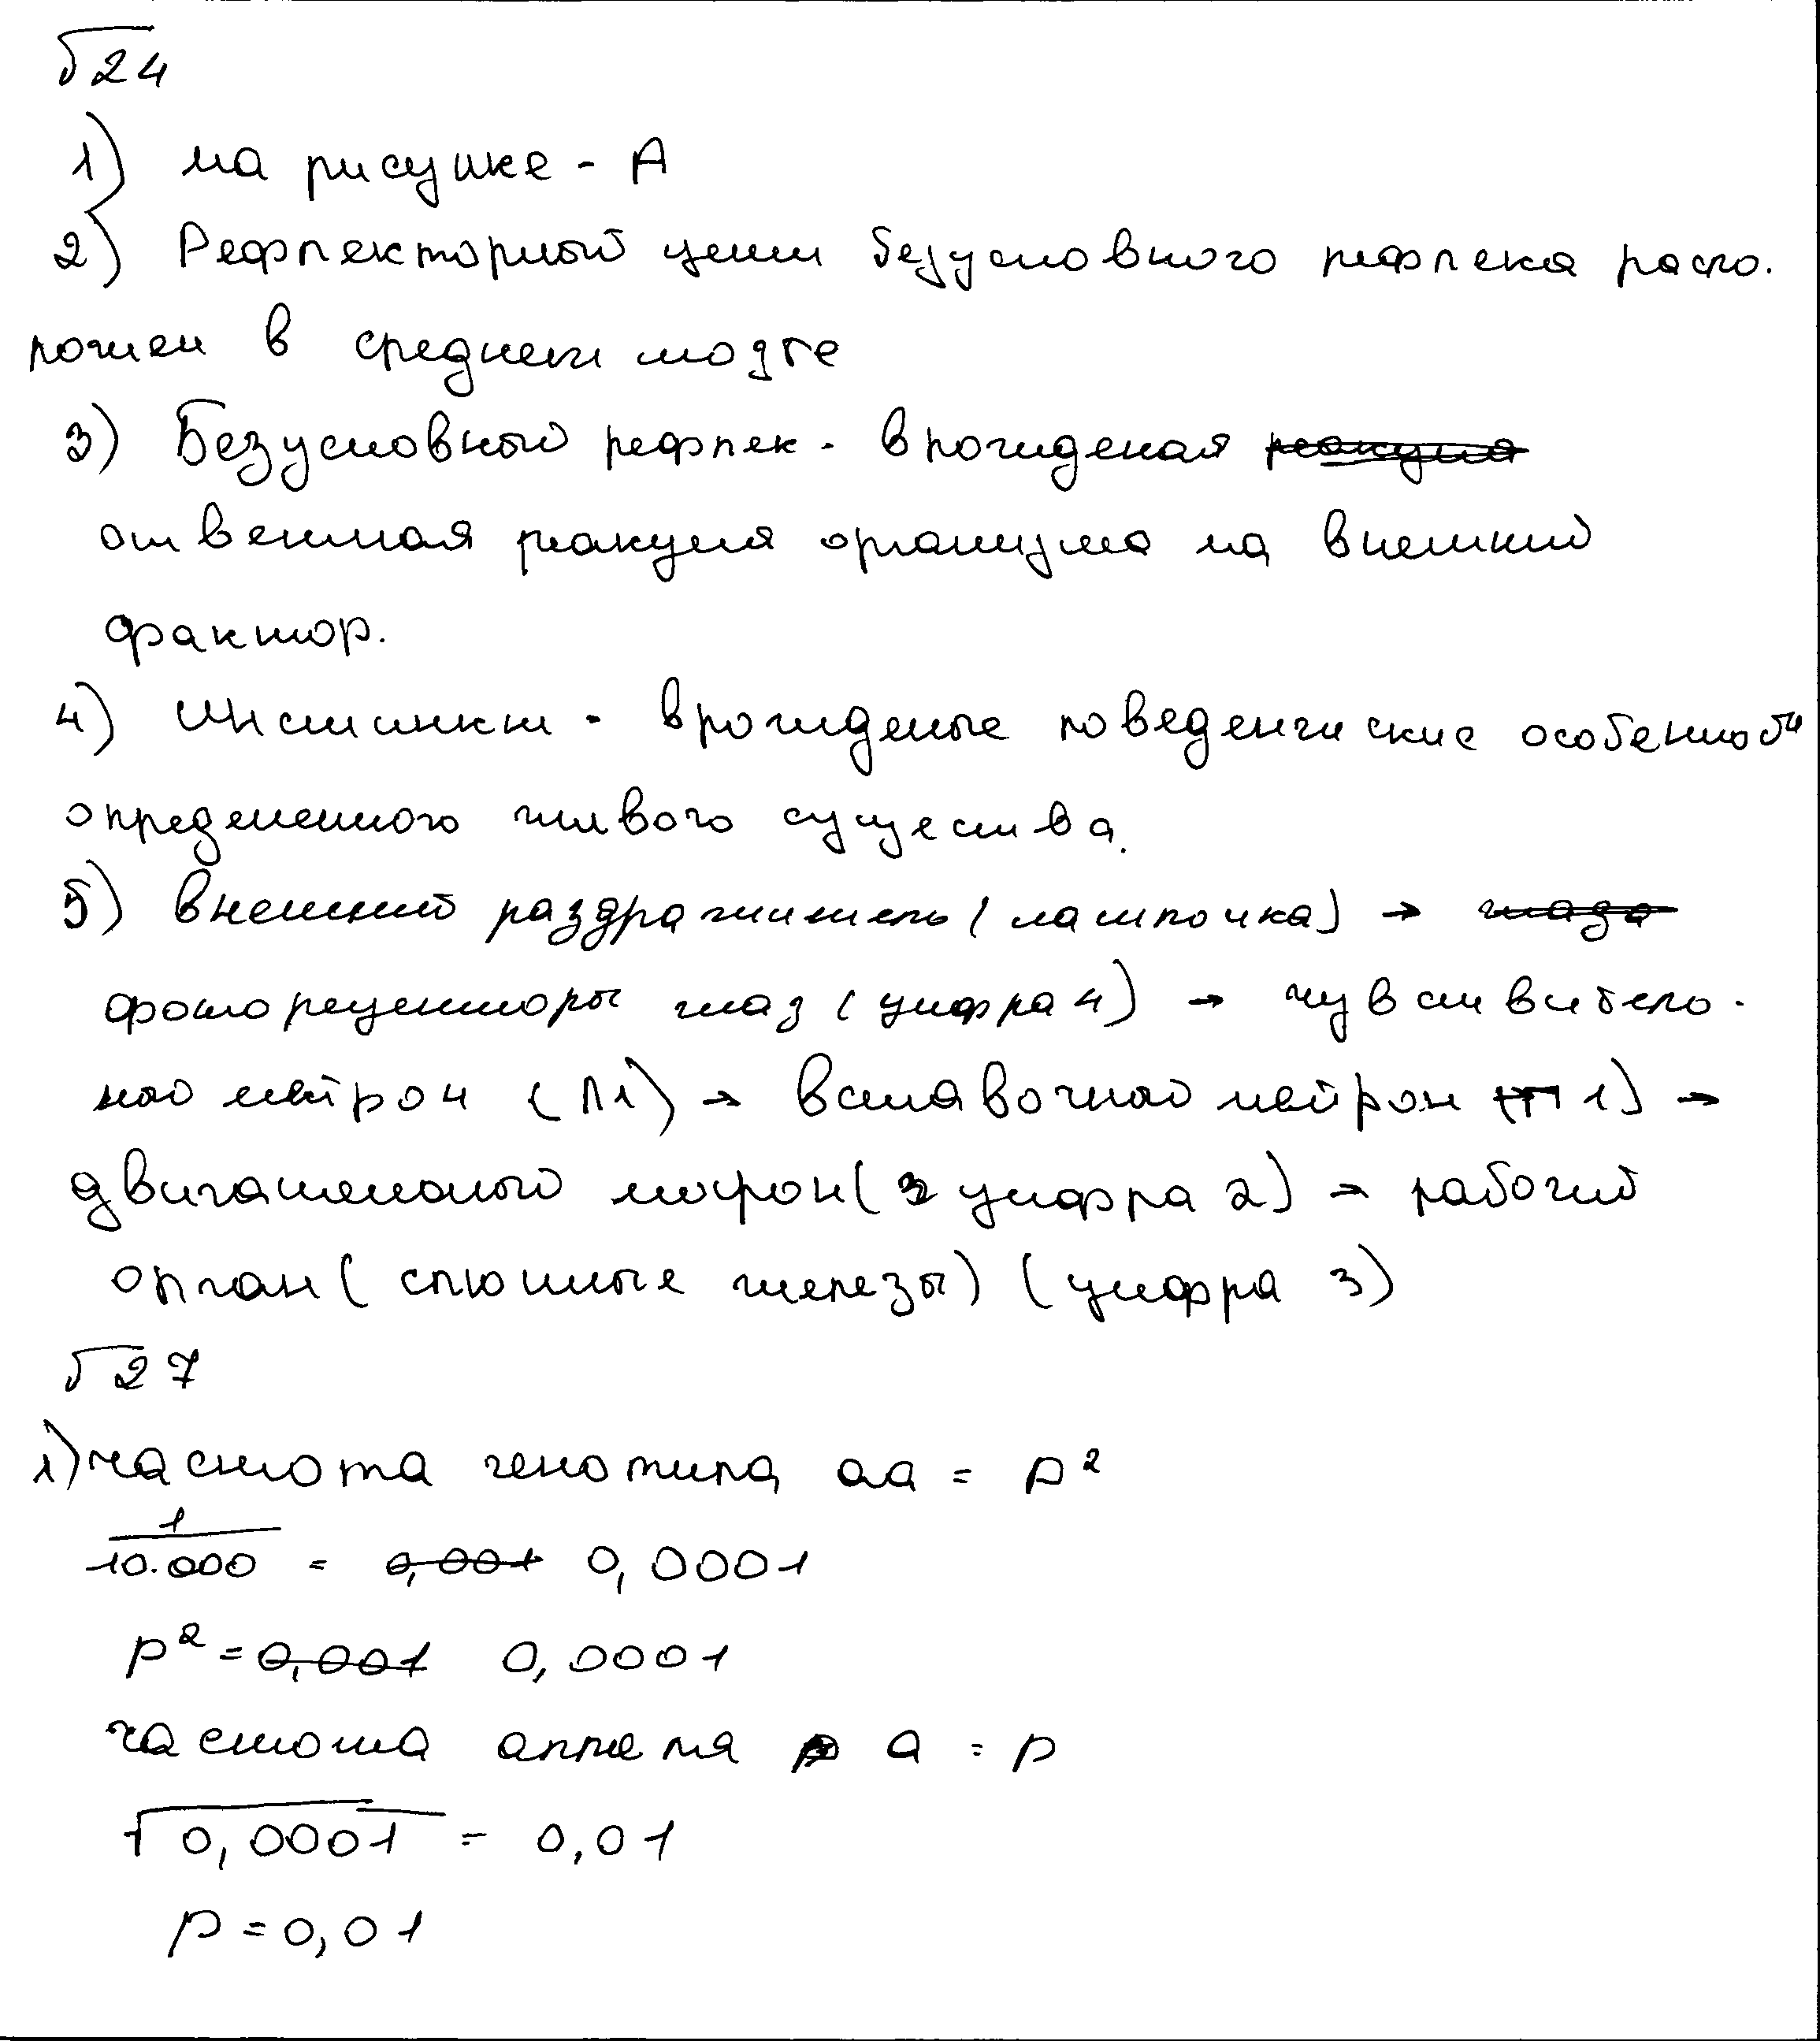 √24
1) на рисунке - А
2) Рефлекторный центр безусловного рефлекса распо-
ложен в среднем мозге
3) Безусловный рефлек - врожденая реакция
ответная реакция организма на внешний
фактор.
4) Инстинкт - врожденые поведенческие особенности
определенного живого существа.
5) внешний раздражитель (лампочка) → глаза
фоторецепторы глаз (цифра 4) → чувствитель-
ный нейрон (П1) → вставочный нейрон 1) →
двигательный нейрон (цифра 2) → рабочий
орган (слюнные железы) (цифра 3)
√27
1) частота генотипа aa = p²
1
10.000 = 0,001 0,0001
p² = 0,001 0,0001
частота аллеля a = p
√0,0001 = 0,01
p = 0,01